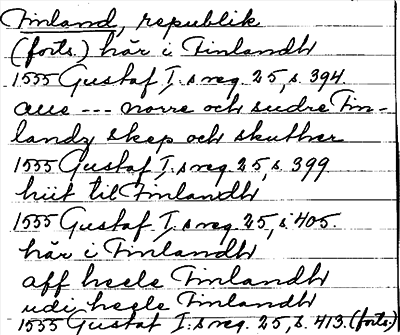 Finland, republik
(forts.) här i Finlandh
1555 Gustaf I:s reg. 25, s. 394.
aue --- norre och sudre Fin-
landz skep och skuther
1555 Gustaf I:s reg. 25, s. 399
hiit til Finlandh
1555 Gustaf I:s reg. 25, s. 405.
här i Finlandh
aff heele Finlandh
udi hegle Finlandh
1555 Gustaf I:s reg. 25, s. 413. (forts.)